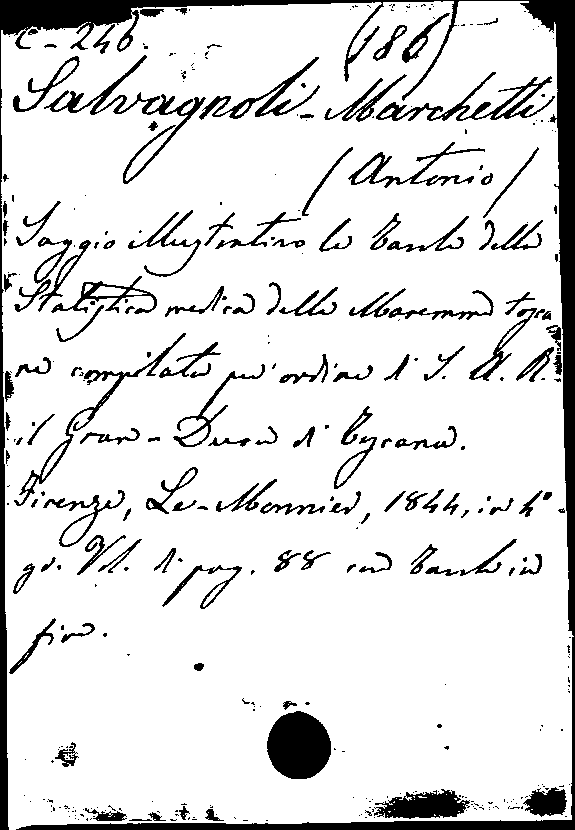 C-246. (186)
Salvagnoli-Marchetti
(Antonio)
Saggio illustrativo le Tavole della
Statistica medica delle Maremme tosca
ne compilata per ordine di S. A. R.
il Gran-Duca di Toscana.
Firenze, Le-Monnier, 1844, in 4°-
gr. Vol. di pag. 88 con Tavole in
fine.